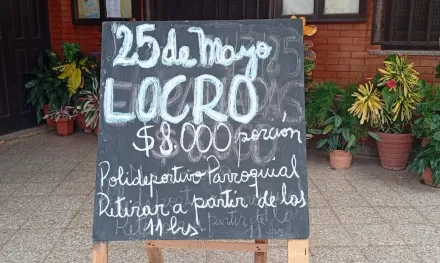 25 de Mayo
LOCRO
$8.000 porción
Polideportivo Parroquial
Retirar a partir de las
11 hs